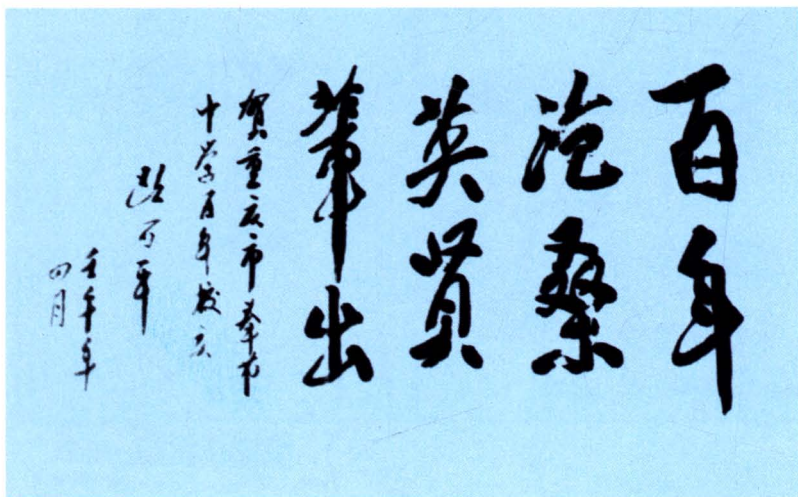 百年
沧桑
英贤
辈出
贺重庆市奉节
中学百年校庆
欧可平
壬午年
四月